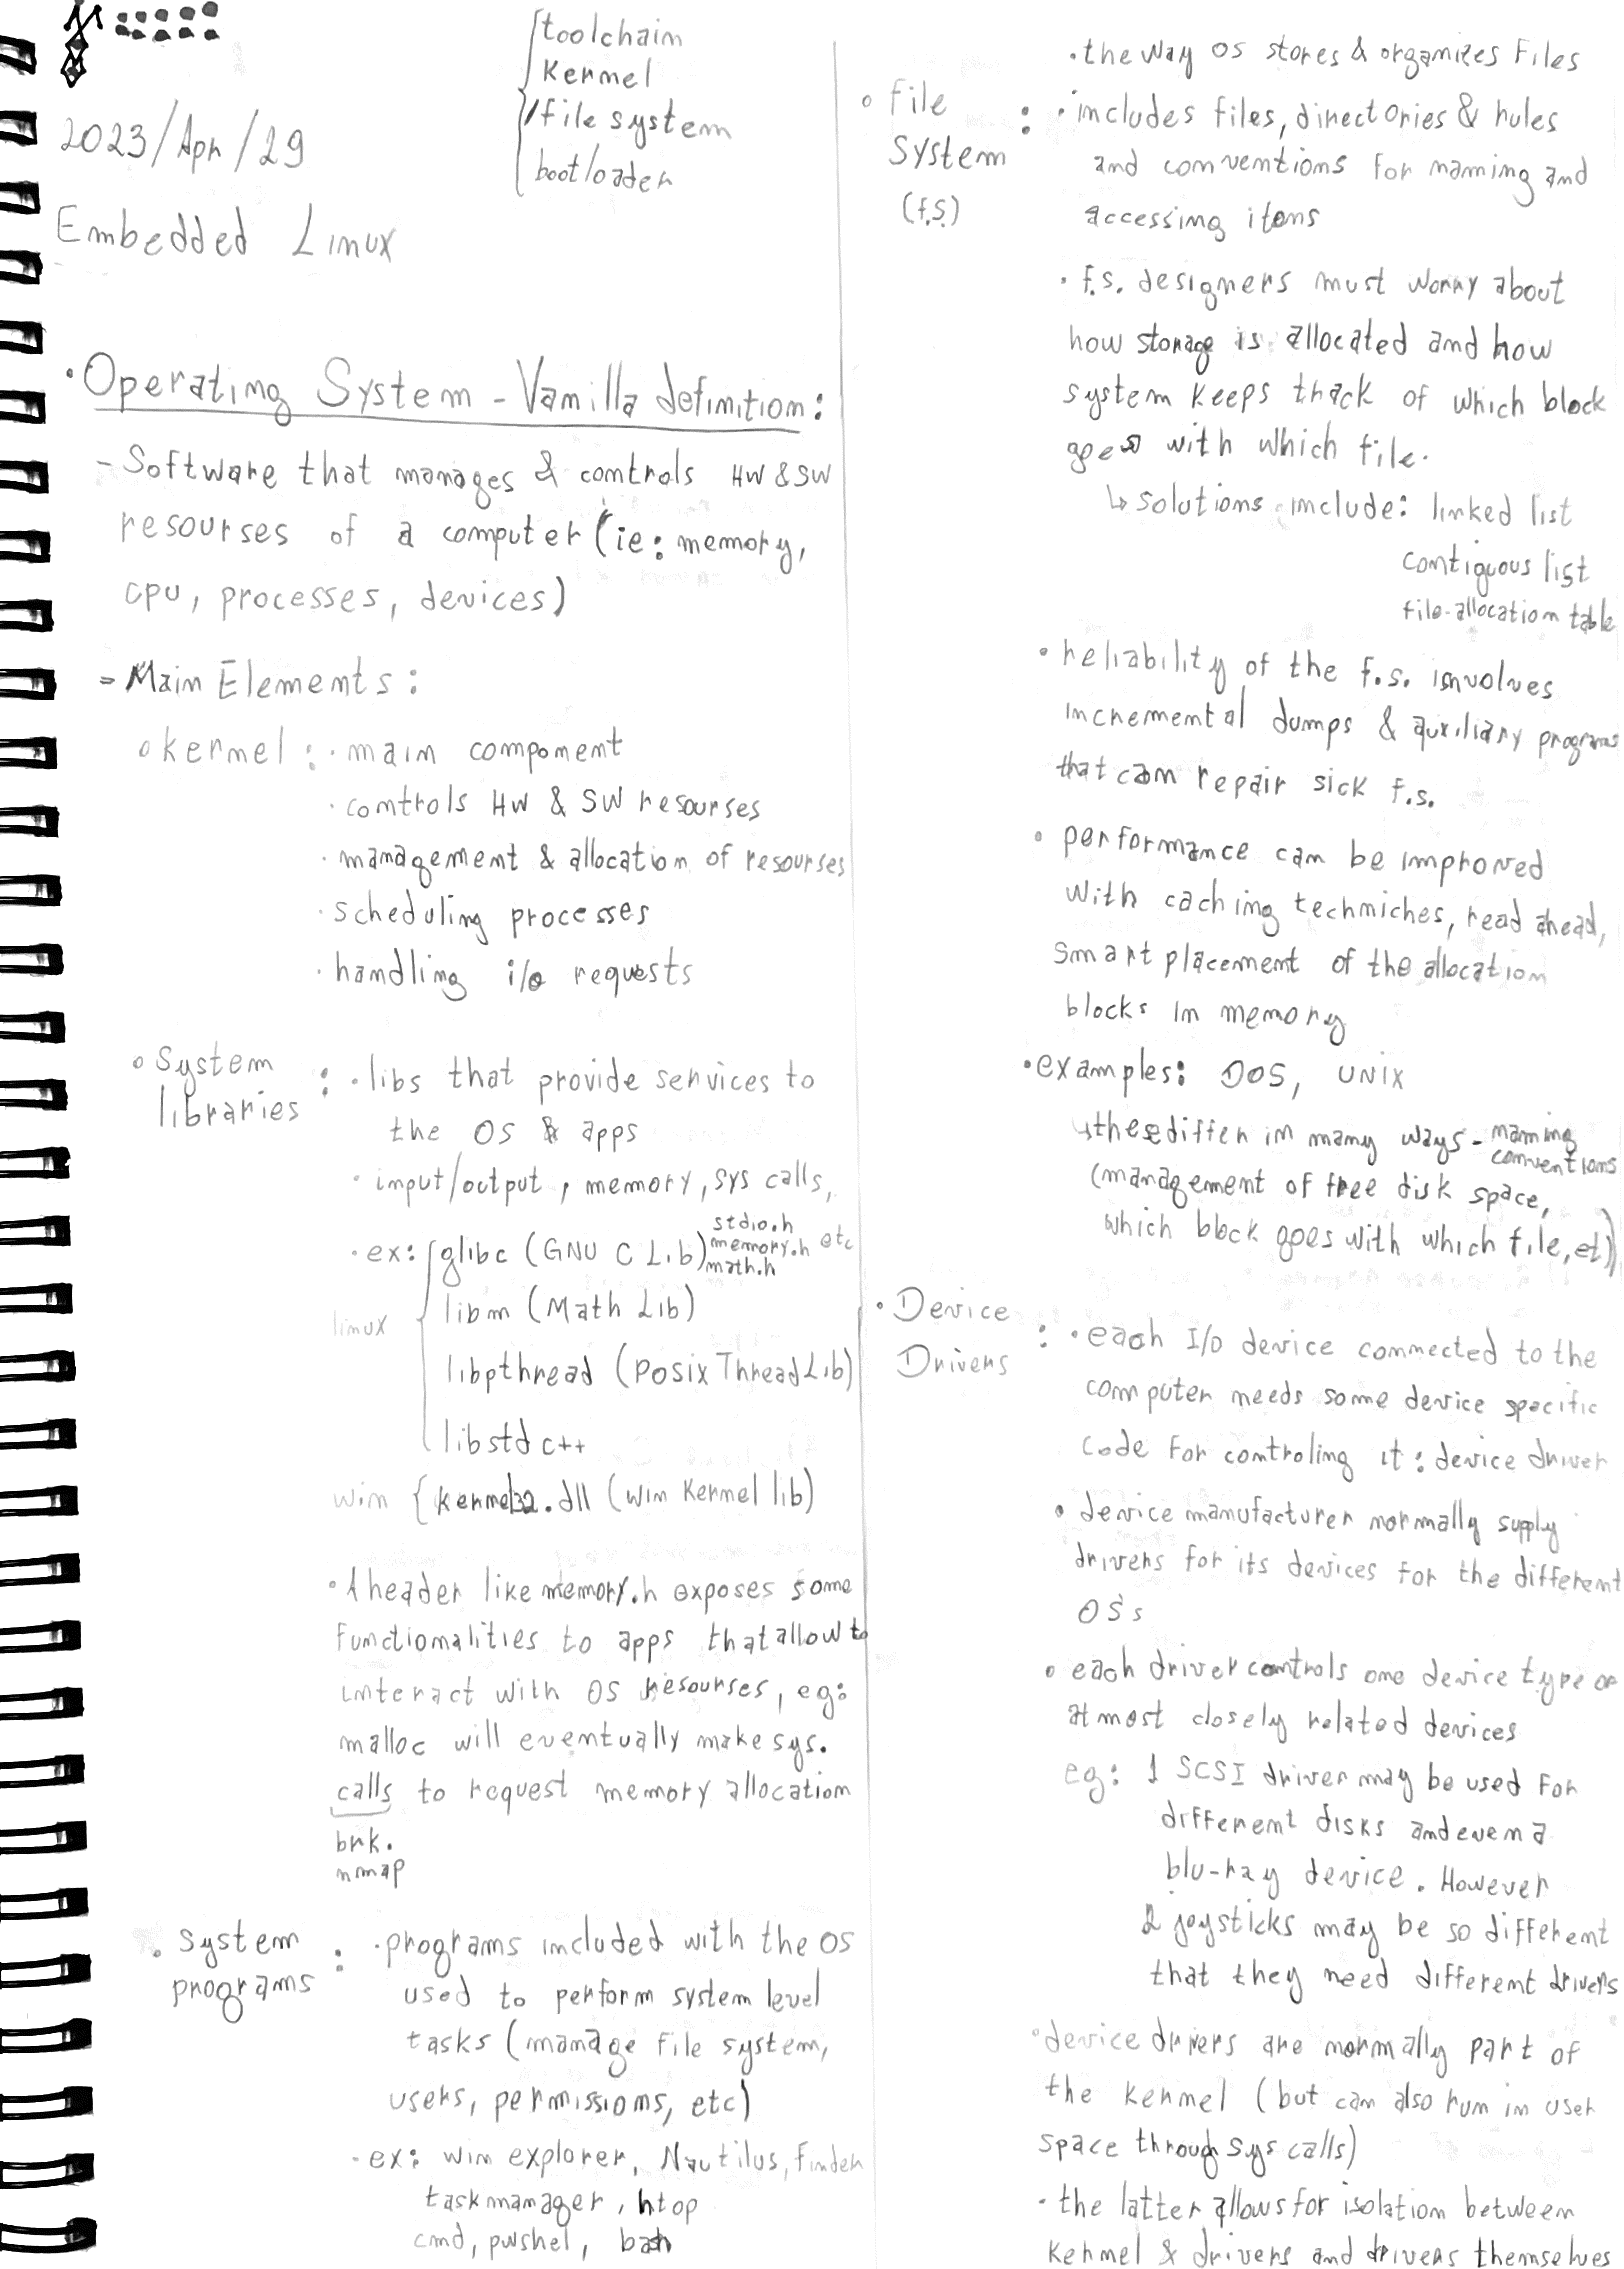 2023/Apr/29
Embedded Linux
toolchain
kernel
file system
bootloader
• Operating System - Vanilla definition:
- Software that manages & controls HW & SW
resourses of a computer (ie: memory,
cpu, processes, devices)
- Main Elements:
o kernel : · main component
· controls HW & SW resourses
· management & allocation of resourses
· scheduling processes
· handling i/o requests
o System
libraries : · libs that provide services to
the OS & apps
· input/output, memory, sys calls,
· ex: glibc (GNU C Lib) stdio.h memory.h math.h etc
linux
libm (Math Lib)
libpthread (Posix Thread Lib)
libstdc++
win { kernel32.dll (win kernel lib)
· A header like memory.h exposes some
functionalities to apps that allow to
interact with OS resourses, eg:
malloc will eventually make sys.
calls to request memory allocation
brk.
mmap
· System
programs : · programs included with the OS
used to perform system level
tasks (manage file system,
users, permissions, etc)
· ex: win explorer, Nautilus, finder
task manager, htop
cmd, pwshel, bash
· the way OS stores & organizes files
o file
System
(f.S.) : · includes files, directories & rules
and conventions for naming and
accessing itens
· f.s. designers must worry about
how storage is allocated and how
system keeps track of which block
goes with which file.
↳ solutions include: linked list
contiguous list
file-allocation table
· reliability of the f.s. involves
incremental dumps & auxiliary programs
that can repair sick f.s.
· performance can be improved
with caching techniches, read ahead,
smart placement of the allocation
blocks in memory
· examples: DOS, UNIX
↳ these differ in many ways - naming
conventions
(management of free disk space,
which block goes with which file, et))
· Device
Drivers : · each I/O device connected to the
computer needs some device specific
code for controling it: device driver
· device manufacturer normally supply
drivers for its devices for the different
OS's
· each driver controls one device type or
at most closely related devices
eg: 1 SCSI driver may be used for
different disks and even a
blu-ray device. However
2 joysticks may be so different
that they need different drivers
· device drivers are normally part of
the kernel (but can also run in user
space through sys calls)
· the latter allows for isolation between
kernel & drivers and drivers themselves